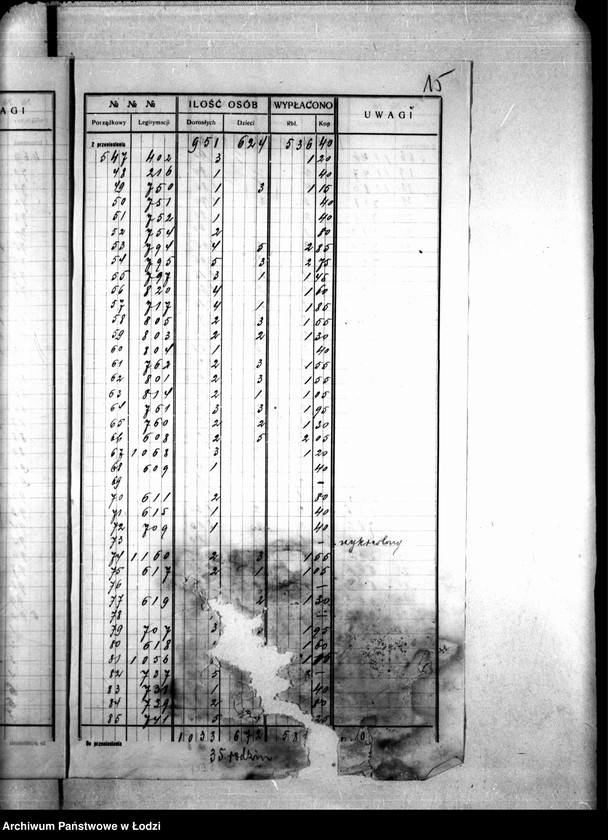 15
AGI
№ № № ILOŚĆ OSÓB WYPŁACONO UWAGI
Porządkowy Legitymacji Dorosłych Dzieci Rbl. Kop
Z przeniesienia 951 624 536 40
547 402 3 1 20
48 216 1 40
49 750 1 3 1 15
50 751 1 40
51 752 1 40
52 754 2 80
53 794 4 5 2 85
54 795 5 3 2 75
55 797 3 1 1 45
56 820 4 1 60
57 717 4 1 1 85
58 805 2 3 1 55
59 803 2 2 1 30
60 804 1 40
61 762 2 3 1 55
62 801 2 3 1 55
63 814 2 1 1 05
64 761 3 3 1 95
65 760 2 2 1 30
66 608 2 5 2 05
67 1068 3 1 20
68 609 1 40
69
70 611 2 80
71 615 1 40
72 709 1 40
73 — wykreślony
74 1160 2 3 1 55
75 617 2 1 1 05
76 —
77 619 2 1 30
78 —
79 707 3 1 95
80 618 1 60
81 1056 1
82 737 5
83 731 40
84 2 80
85 741 5 25
Do przeniesienia 1033 672 10
35 rodzin
Archiwum Państwowe w Łodzi